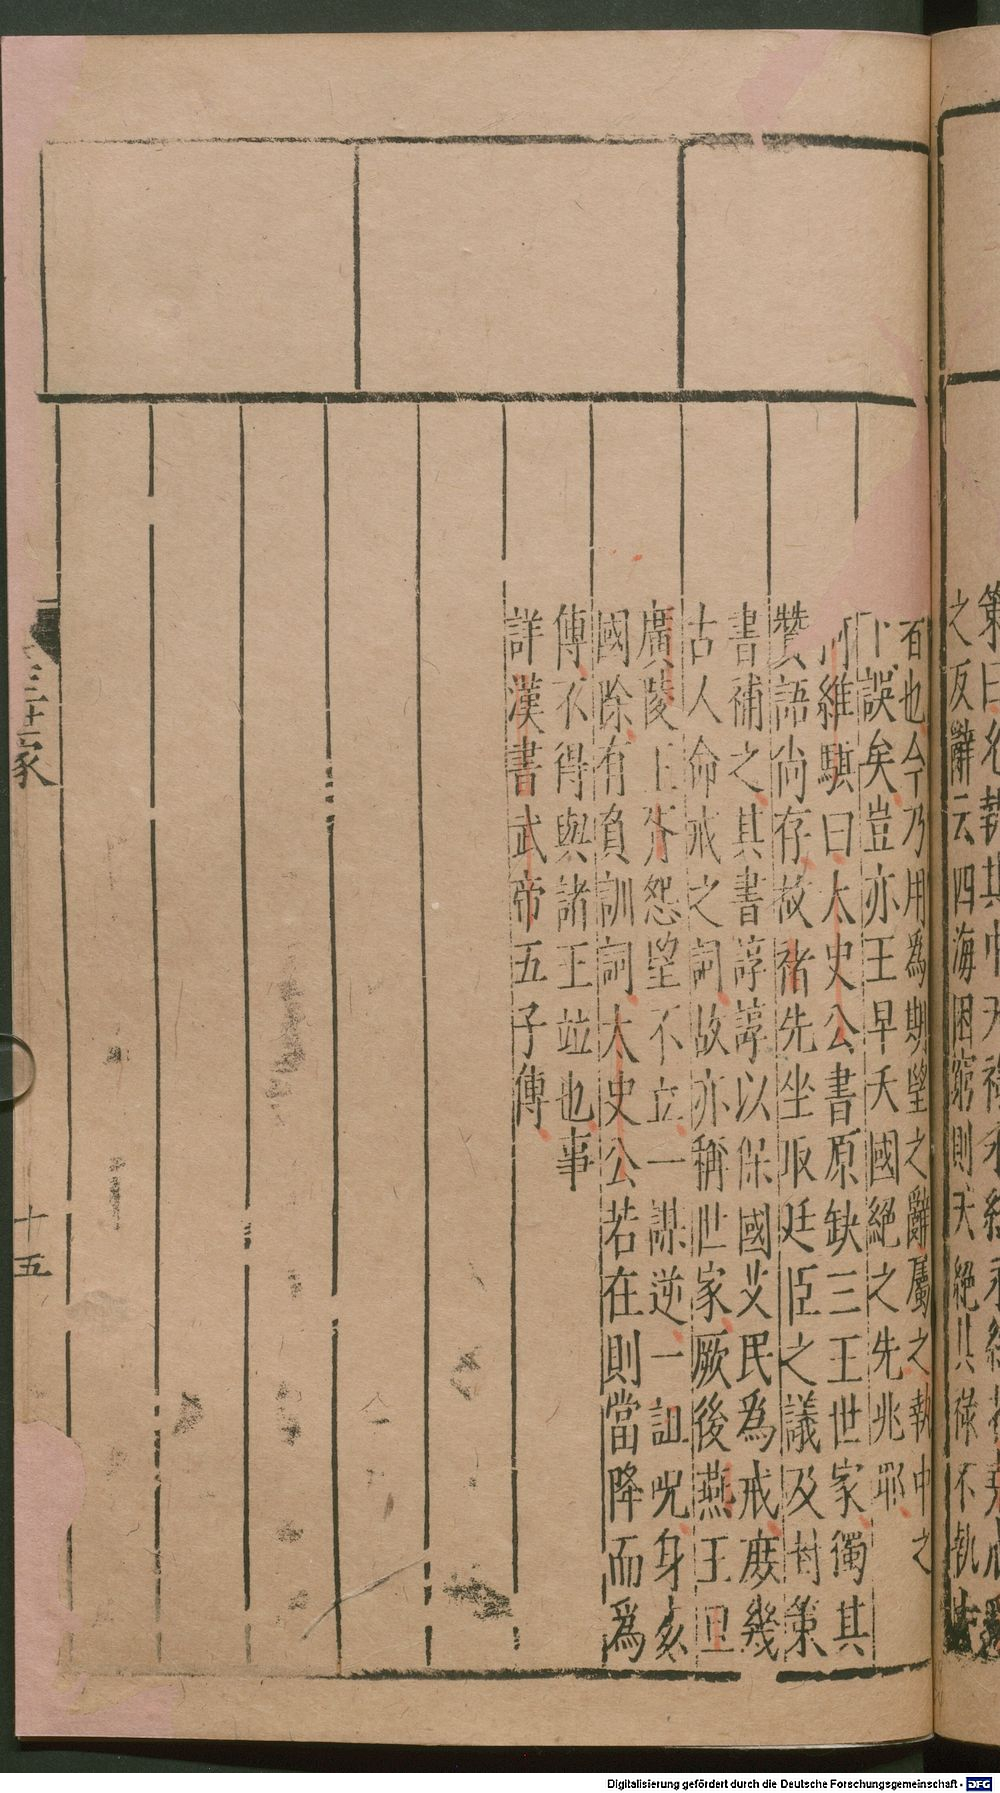 策曰允執其中天祿永終
之反辭云四海困窮則天絕其祿不執中
有也今乃用為期望之辭屬之執中之
下誤矣豈亦王早夭國絕之先兆耶
柯維騏曰太史公書原缺三王世家獨其
贊語尚存故褚先生取廷臣之議及封策
書補之其書諄諄以保國艾民為戒庶幾
古人命戒之詞故亦稱世家厥後燕王旦
廣陵王胥怨望不立一謀逆一詛呪身亥
國除有負訓詞太史公若在則當降而為
傳不得與諸王竝也事
詳漢書武帝五子傳
三世家
十五
Digitalisierung gefördert durch die Deutsche Forschungsgemeinschaft - DFG